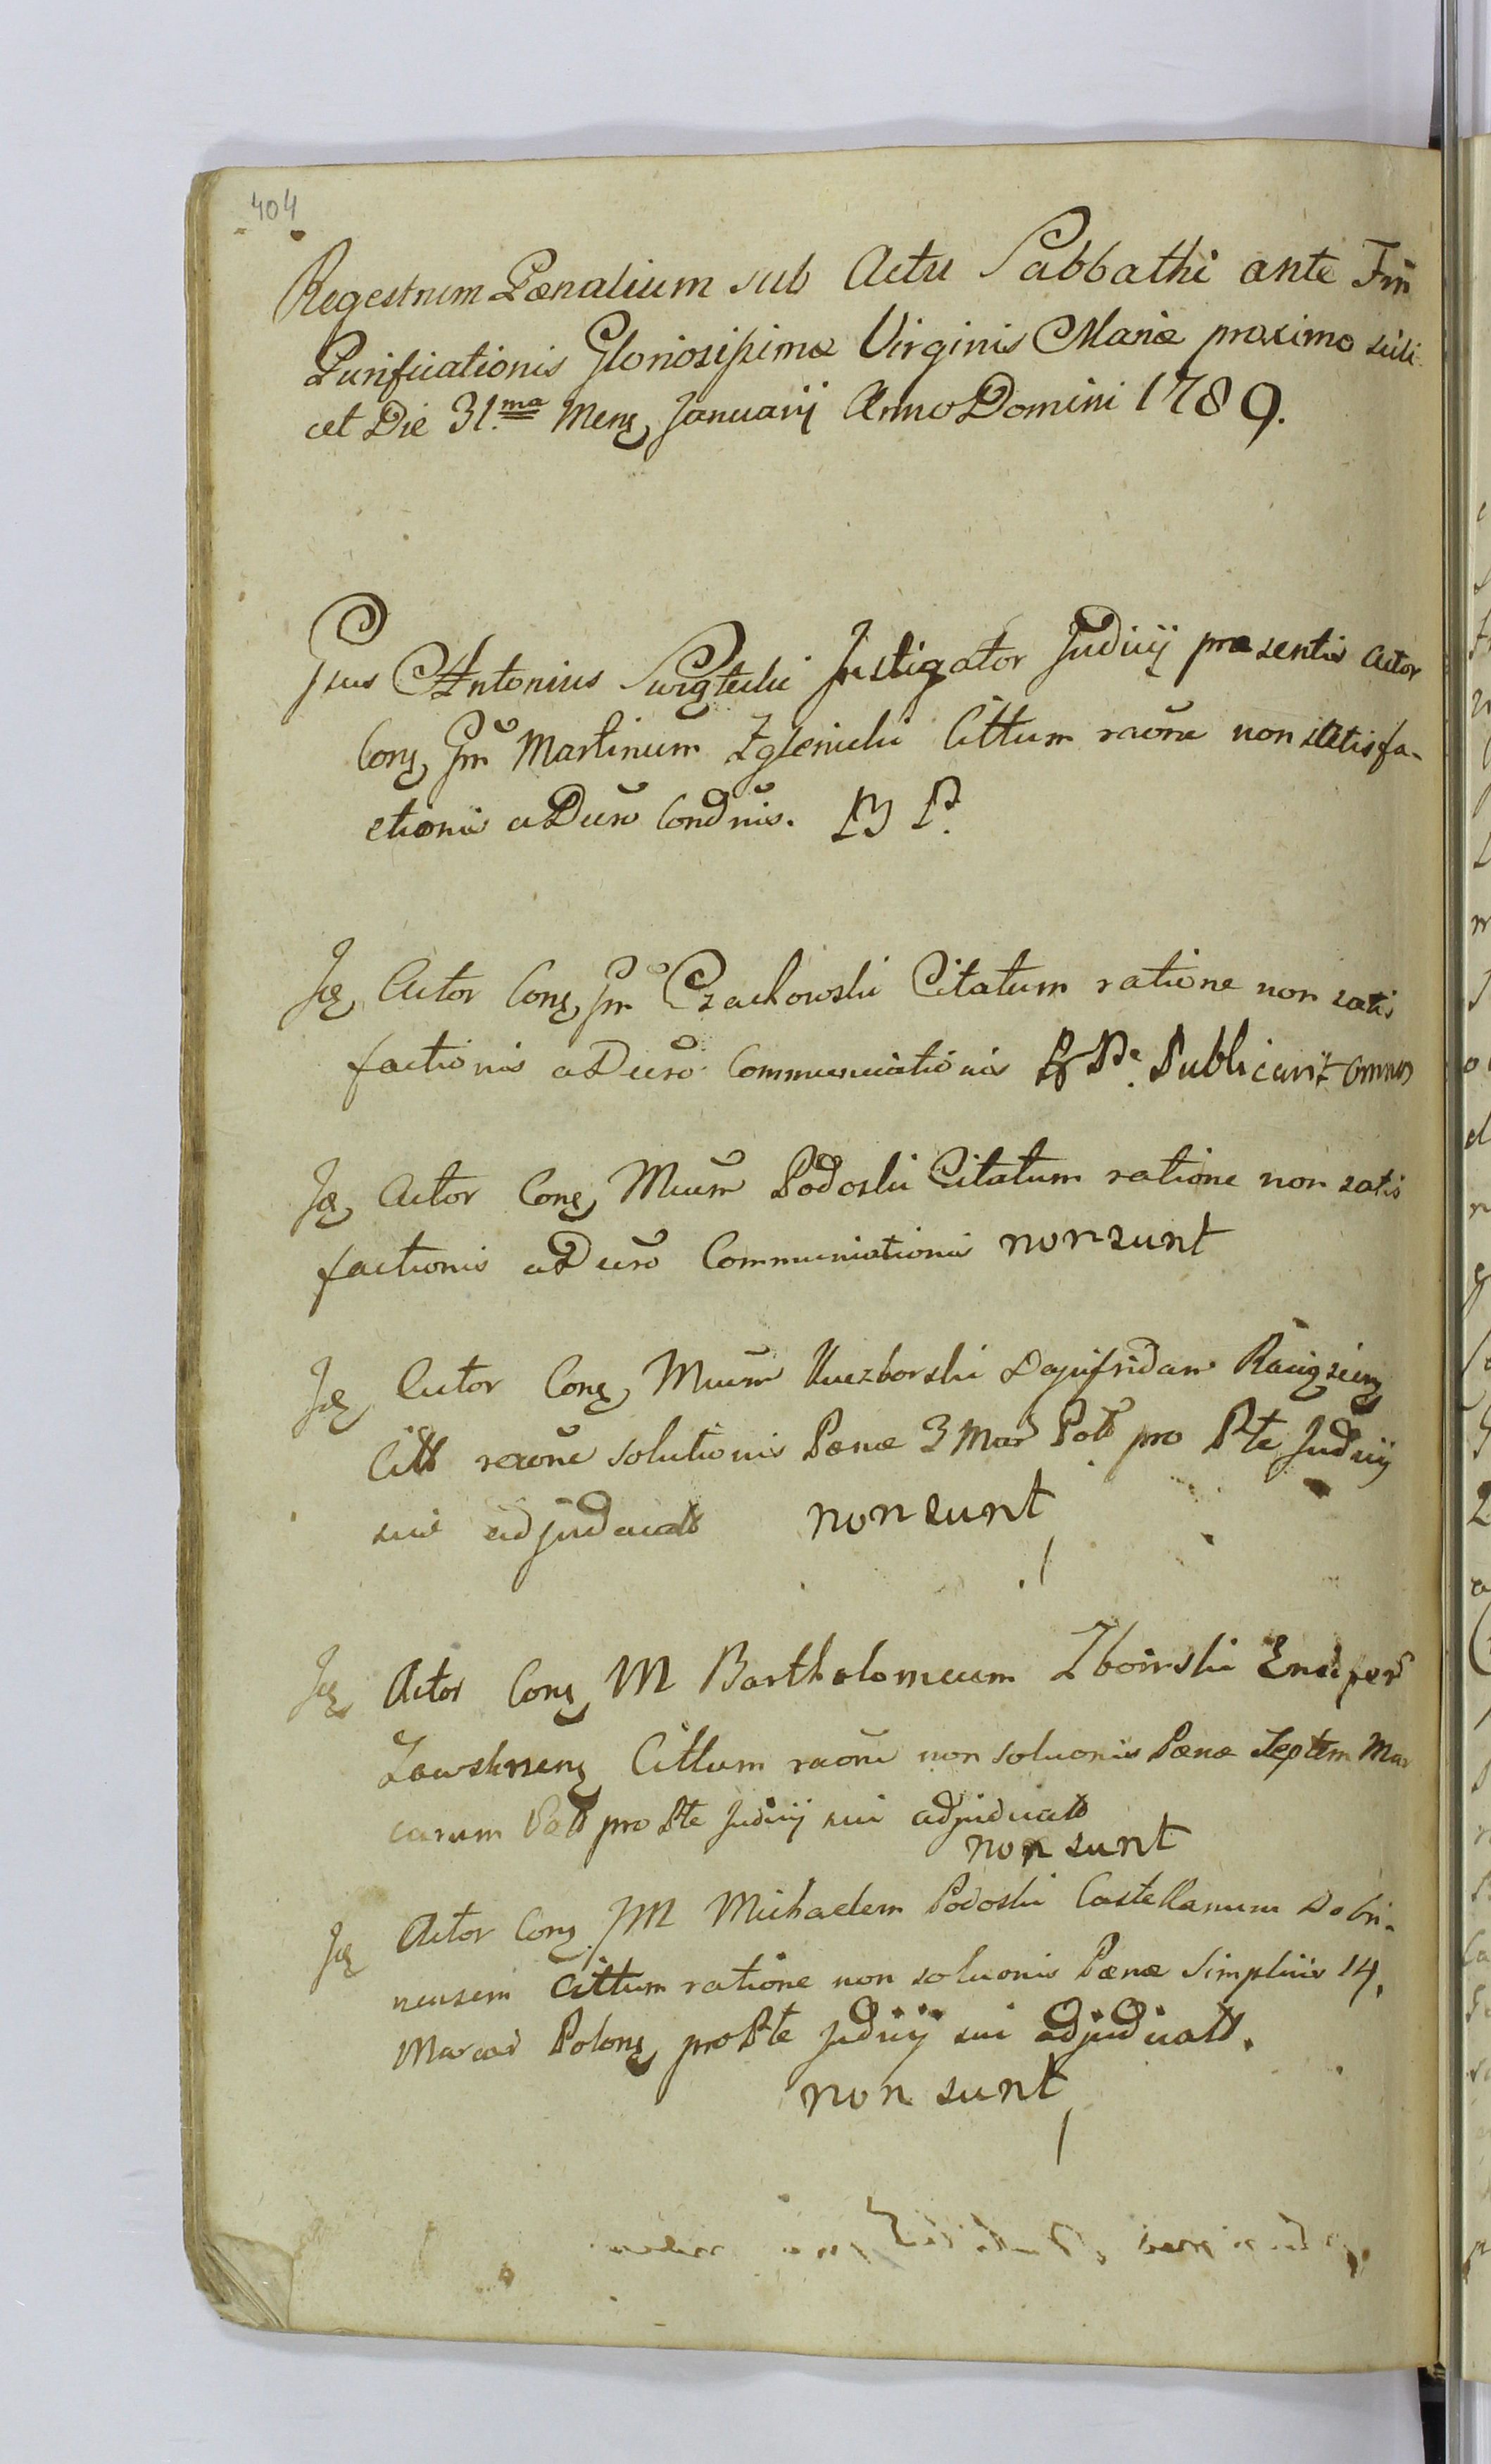 404
Regestrum Pœnalium sub Actu Sabbathi ante Fm
Purificationis Gloriosissimæ Virginis Mariæ proximo scili
cet Die 31.ma Mens Januarij Anno Domini 1789.
Antonius Instigator Judicij præsentis Actor
Cons Martinum Zglenicki Cittum raõne non satisfa-
ctionis Condnis. P
Actor Cons Czachowski Citatum ratione non satis
factionis Communicationis Publicavit
Actor Cons Mcum Podoski Citatum ratione non satis
factionis Communicationis non sunt
Actor Cons Mcum Kuczborski Dapifridam Raciązens
Citt raõne solutionis Pœnæ 3 Mar Poll pro Pte Judicij
sui adjudicatt non sunt
Actor Cons M Bartholomeum Zboinski Ensifer
Zawskrzens Cittum raõne non soluonis Pœnæ Septem Mar
carum Poll pro Pte Judicij sui adjudicatt
non sunt
Actor Cons JM Michaelem Podoski Castellanum Dobri-
nensem Cittum ratione non soluonis Pœnæ Simplicis 14.
Marcar Polons pro Pte Judicij sui adjudicatt.
non sunt